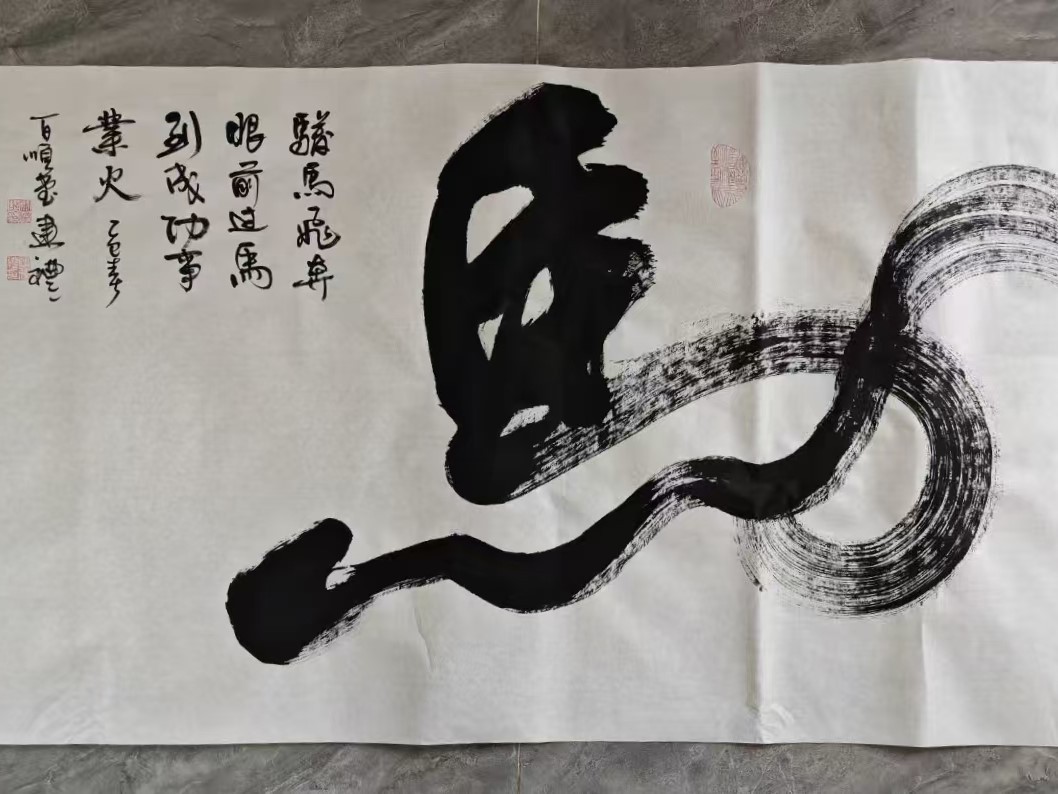 馬
駿馬飛奔
眼前过馬
到成功事
業火 乙巳春
百順堂建禮